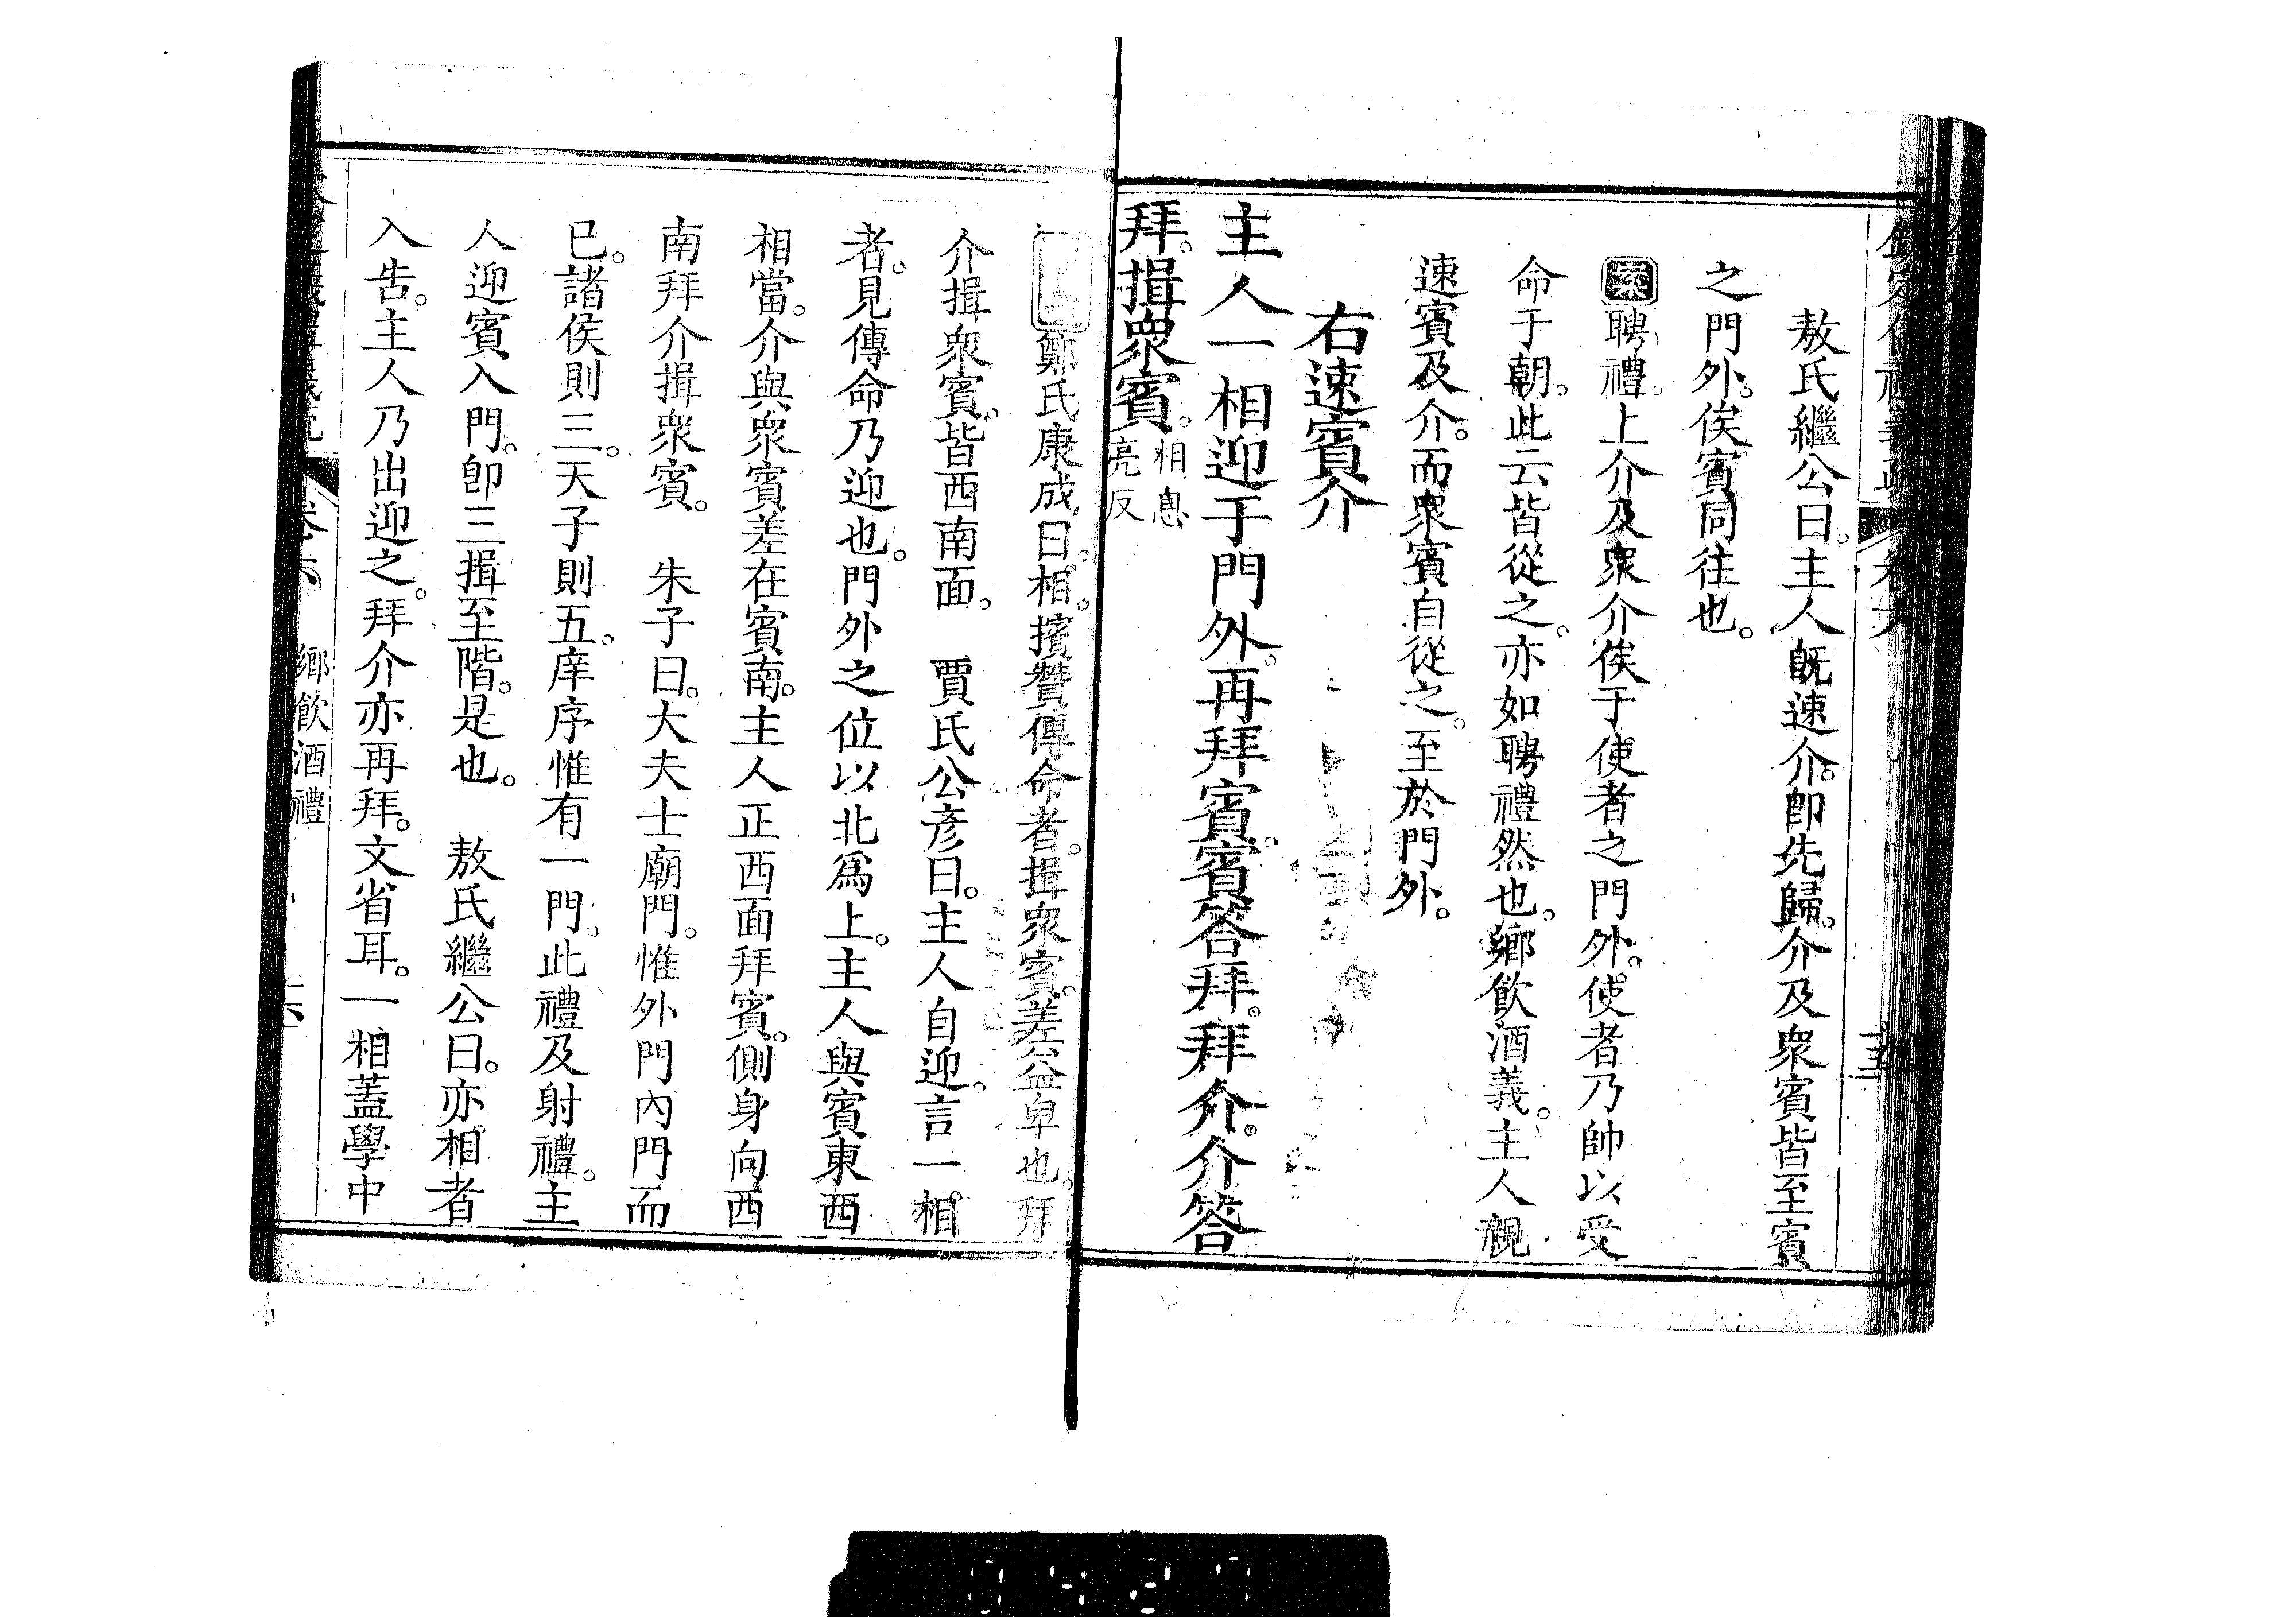 敖氏繼公曰。主人旣速介。卽先歸。介及衆賓皆至賓
之門外。俟賓同往也。
案聘禮。上介及衆介俟于使者之門外。使者乃帥以受
命于朝。此云皆從之。亦如聘禮然也。鄉飲酒義。主人親
速賓及介。而衆賓自從之。至於門外。
右速賓介
主人一相迎于門外。再拜賓。賓答拜。拜介。介答
拜。揖衆賓。相息亮反
鄭氏康成曰。相。擯贊傳命者。揖衆賓。差益卑也。拜
介揖衆賓。皆西南面。 賈氏公彦曰。主人自迎。言一相
者。見傳命乃迎也。門外之位以北爲上。主人與賓東西
相當。介與衆賓差在賓南。主人正西面拜賓。側身向西
南拜介揖衆賓。 朱子曰。大夫士廟門。惟外門內門而
已。諸侯則三。天子則五。庠序惟有一門。此禮及射禮。主
人迎賓入門。卽三揖至階。是也。 敖氏繼公曰。亦相者
入告。主人乃出迎之。拜介亦再拜。文省耳。一相蓋學中
卷六 鄉飲酒禮